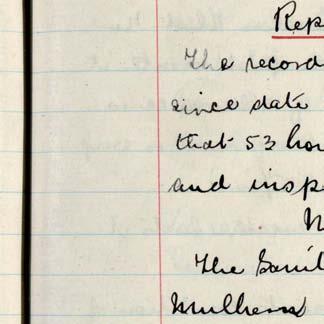 Rep
The record
since date
that 53 hou
and inspe
N
The Sanit
Mulhern